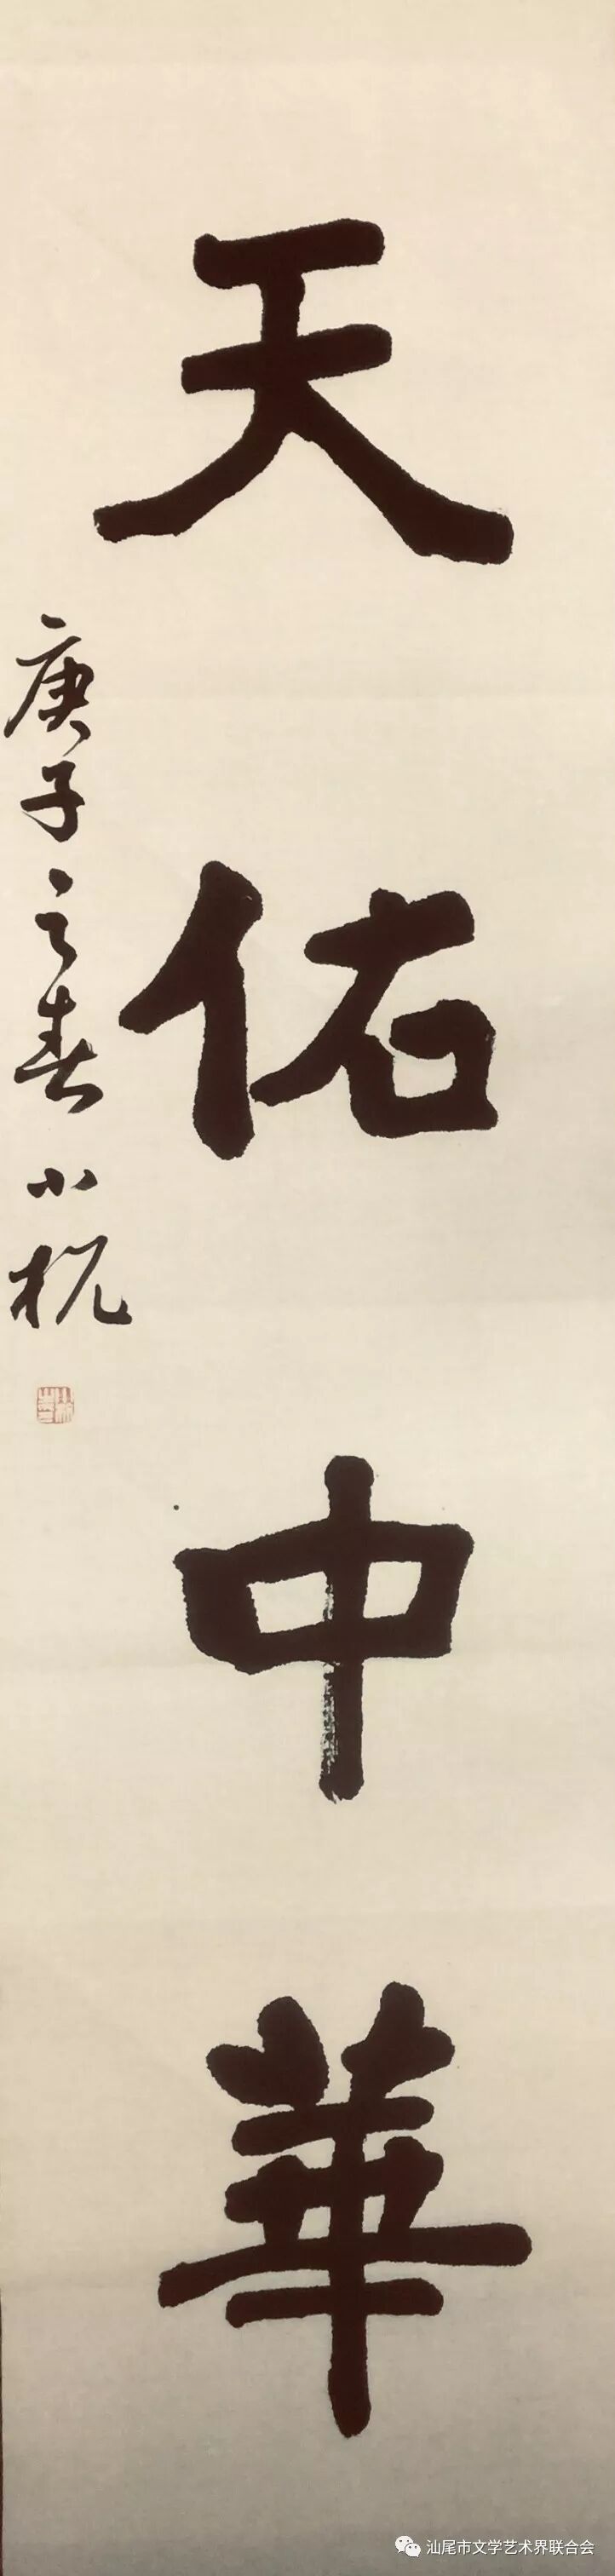 天佑中華
庚子之春 小杭
汕尾市文学艺术界联合会